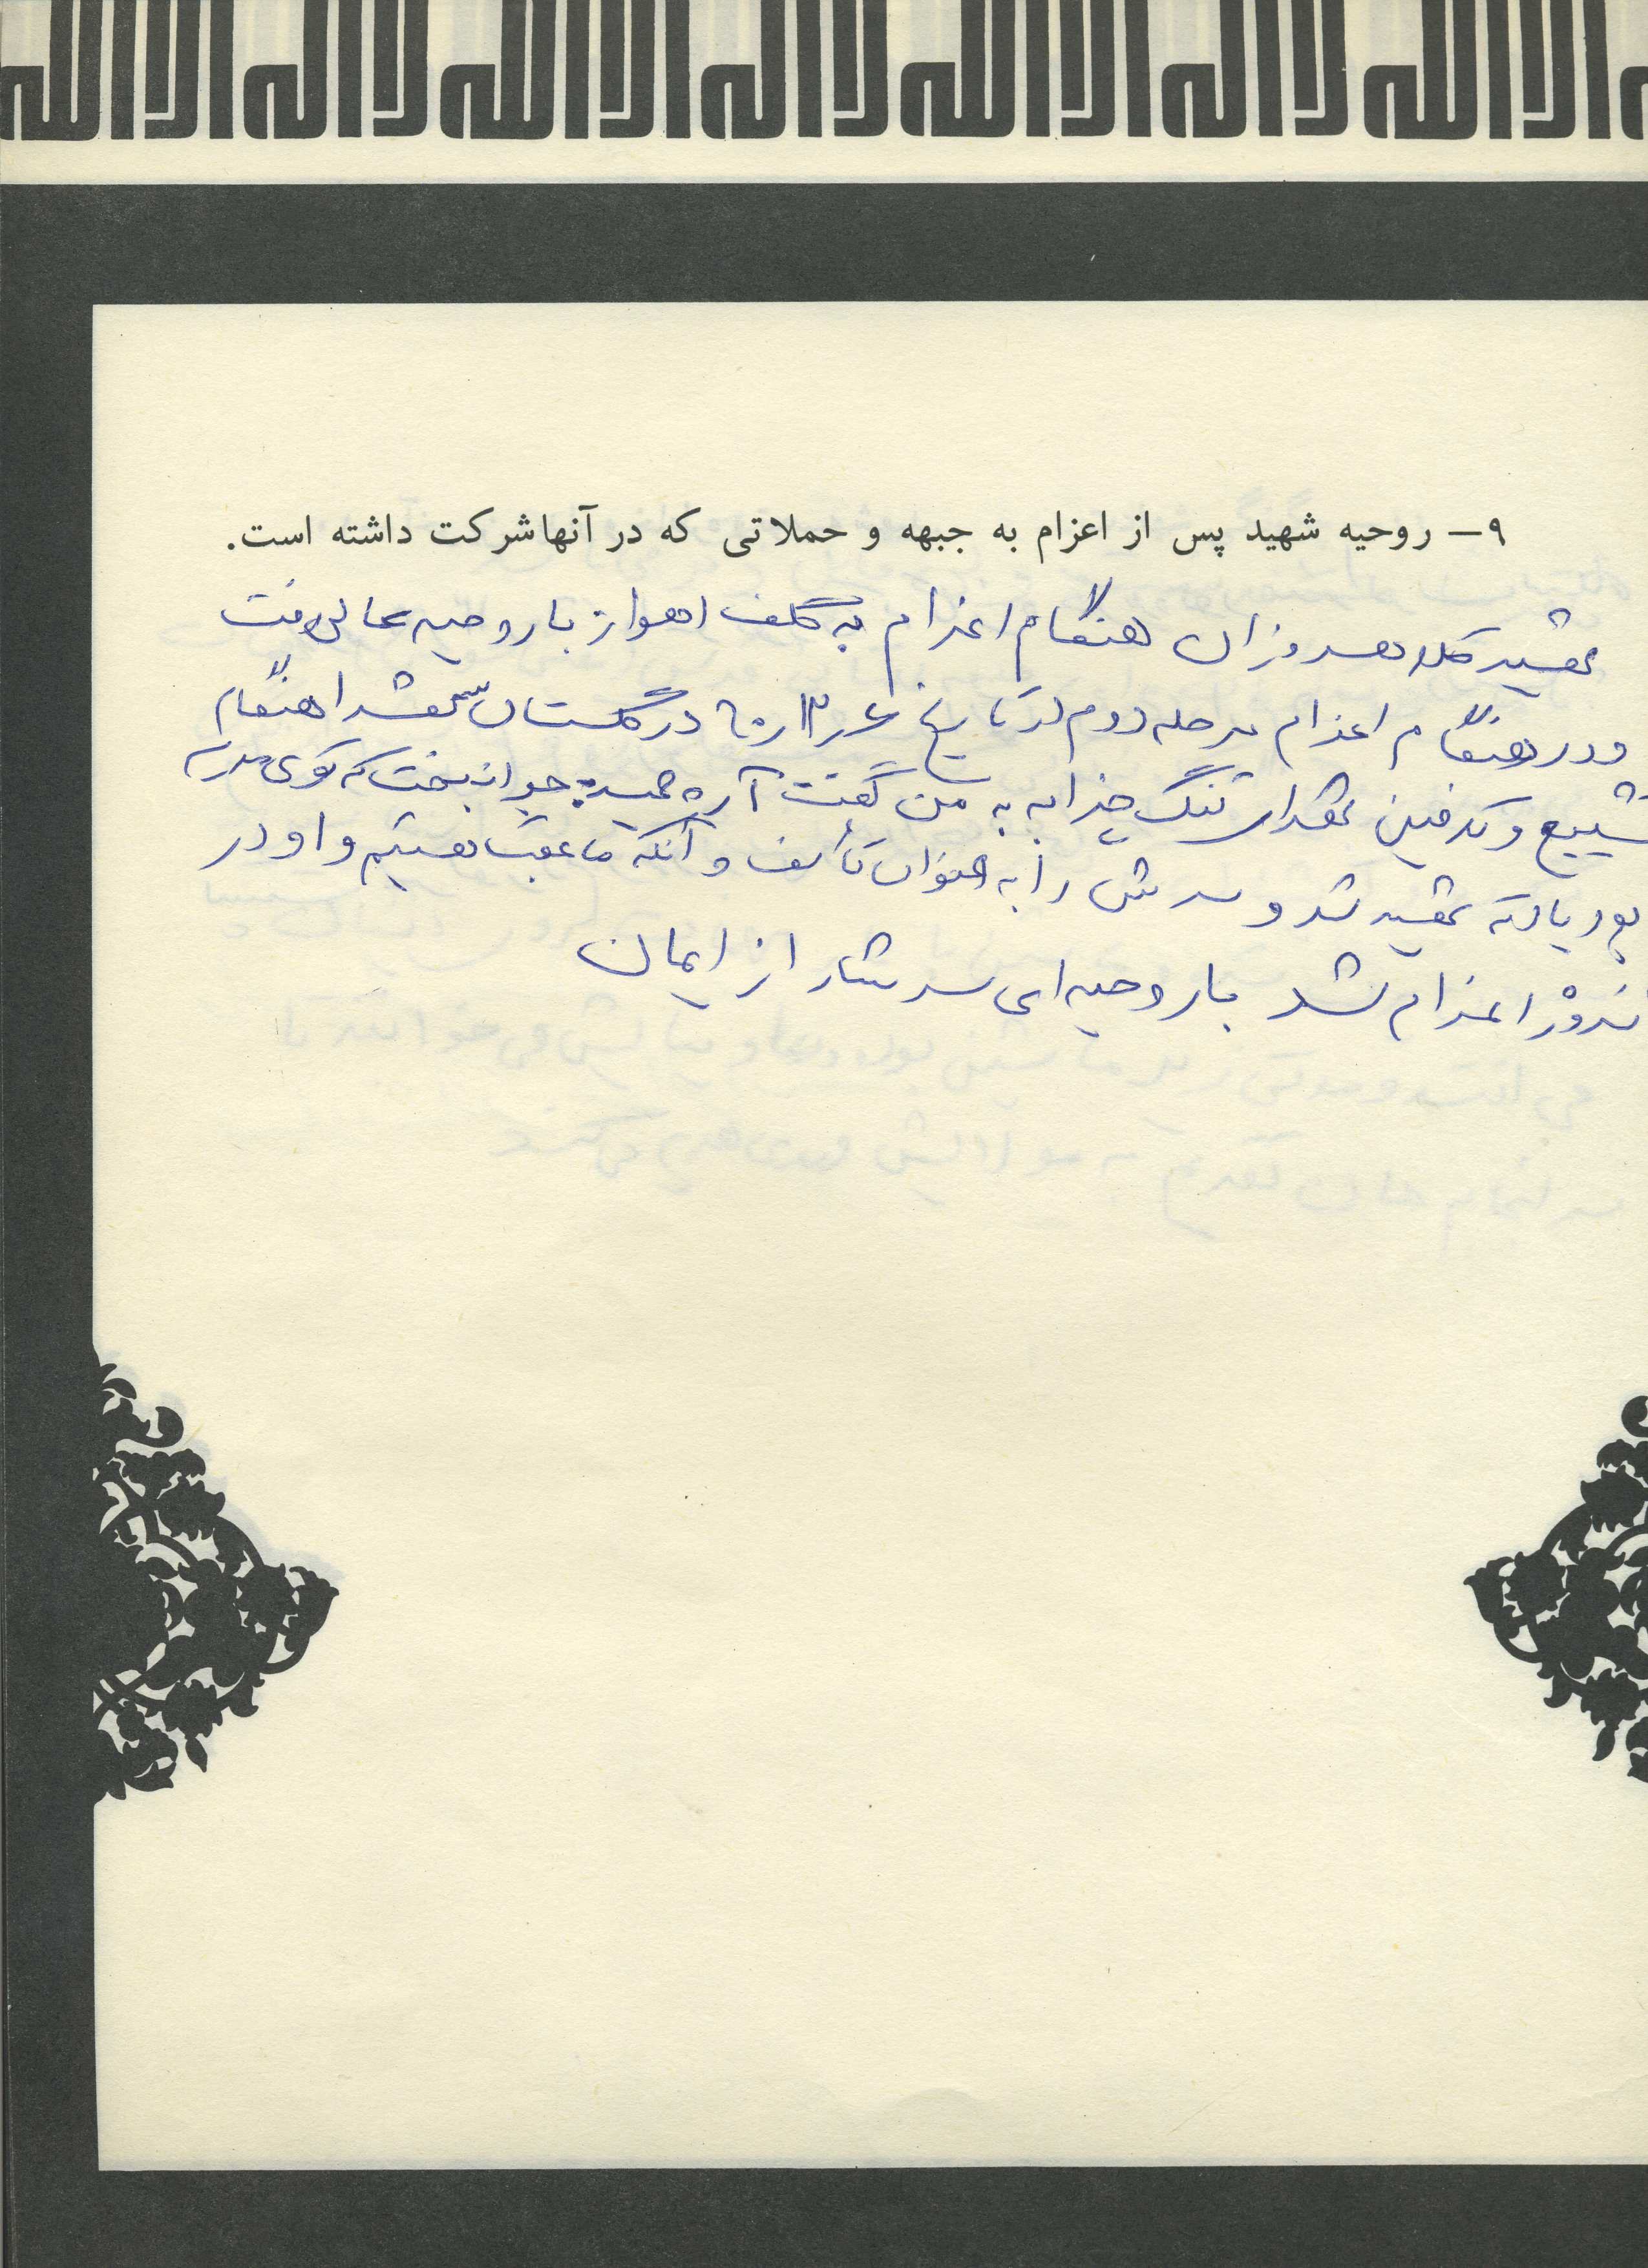 لااله الاالله لااله الاالله لااله الاالله لااله الاالله
۹– روحیه شهید پس از اعزام به جبهه و حملاتی که در آنها شرکت داشته است.
شهید کلاهدوزان هنگام اعزام به گلف اهواز با روحیه عالی رفت
و در هنگام اعزام مرحله دوم در تاریخ ۶۰/۱۲/۶ در گلستان شهدا هنگام
تشییع و تدفین شهدای تنگ چزابه به من گفت آره حمید جوانبخت که توی مدرسه
بود یادته شهید شد و سرش را به عنوان تأسف و آنکه ما عقب هستیم و او در
اعزام شد با روحیه ای سرشار از ایمان